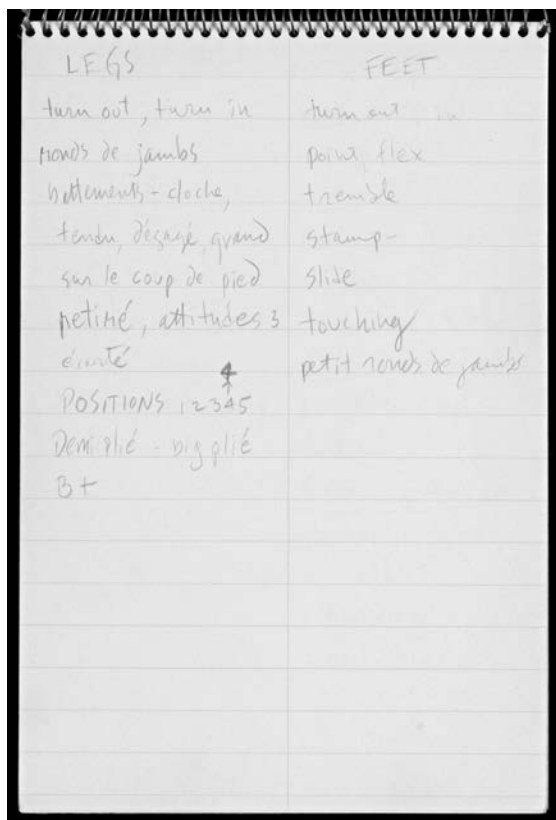 LEGS
turn out, turn in
ronds de jambs
battements - cloche,
tendu, dégagé, grand
sur le coup de pied
retiré, attitudes 3
écarté
4
POSITIONS 12345
Demi plié - big plié
B+
FEET
turn out in
point, flex
tremble
stamp -
slide
touching
petit ronds de jambs